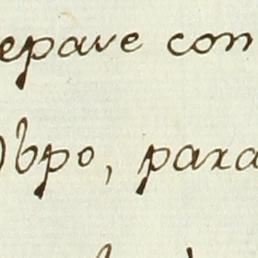 epave con
Obpo, para